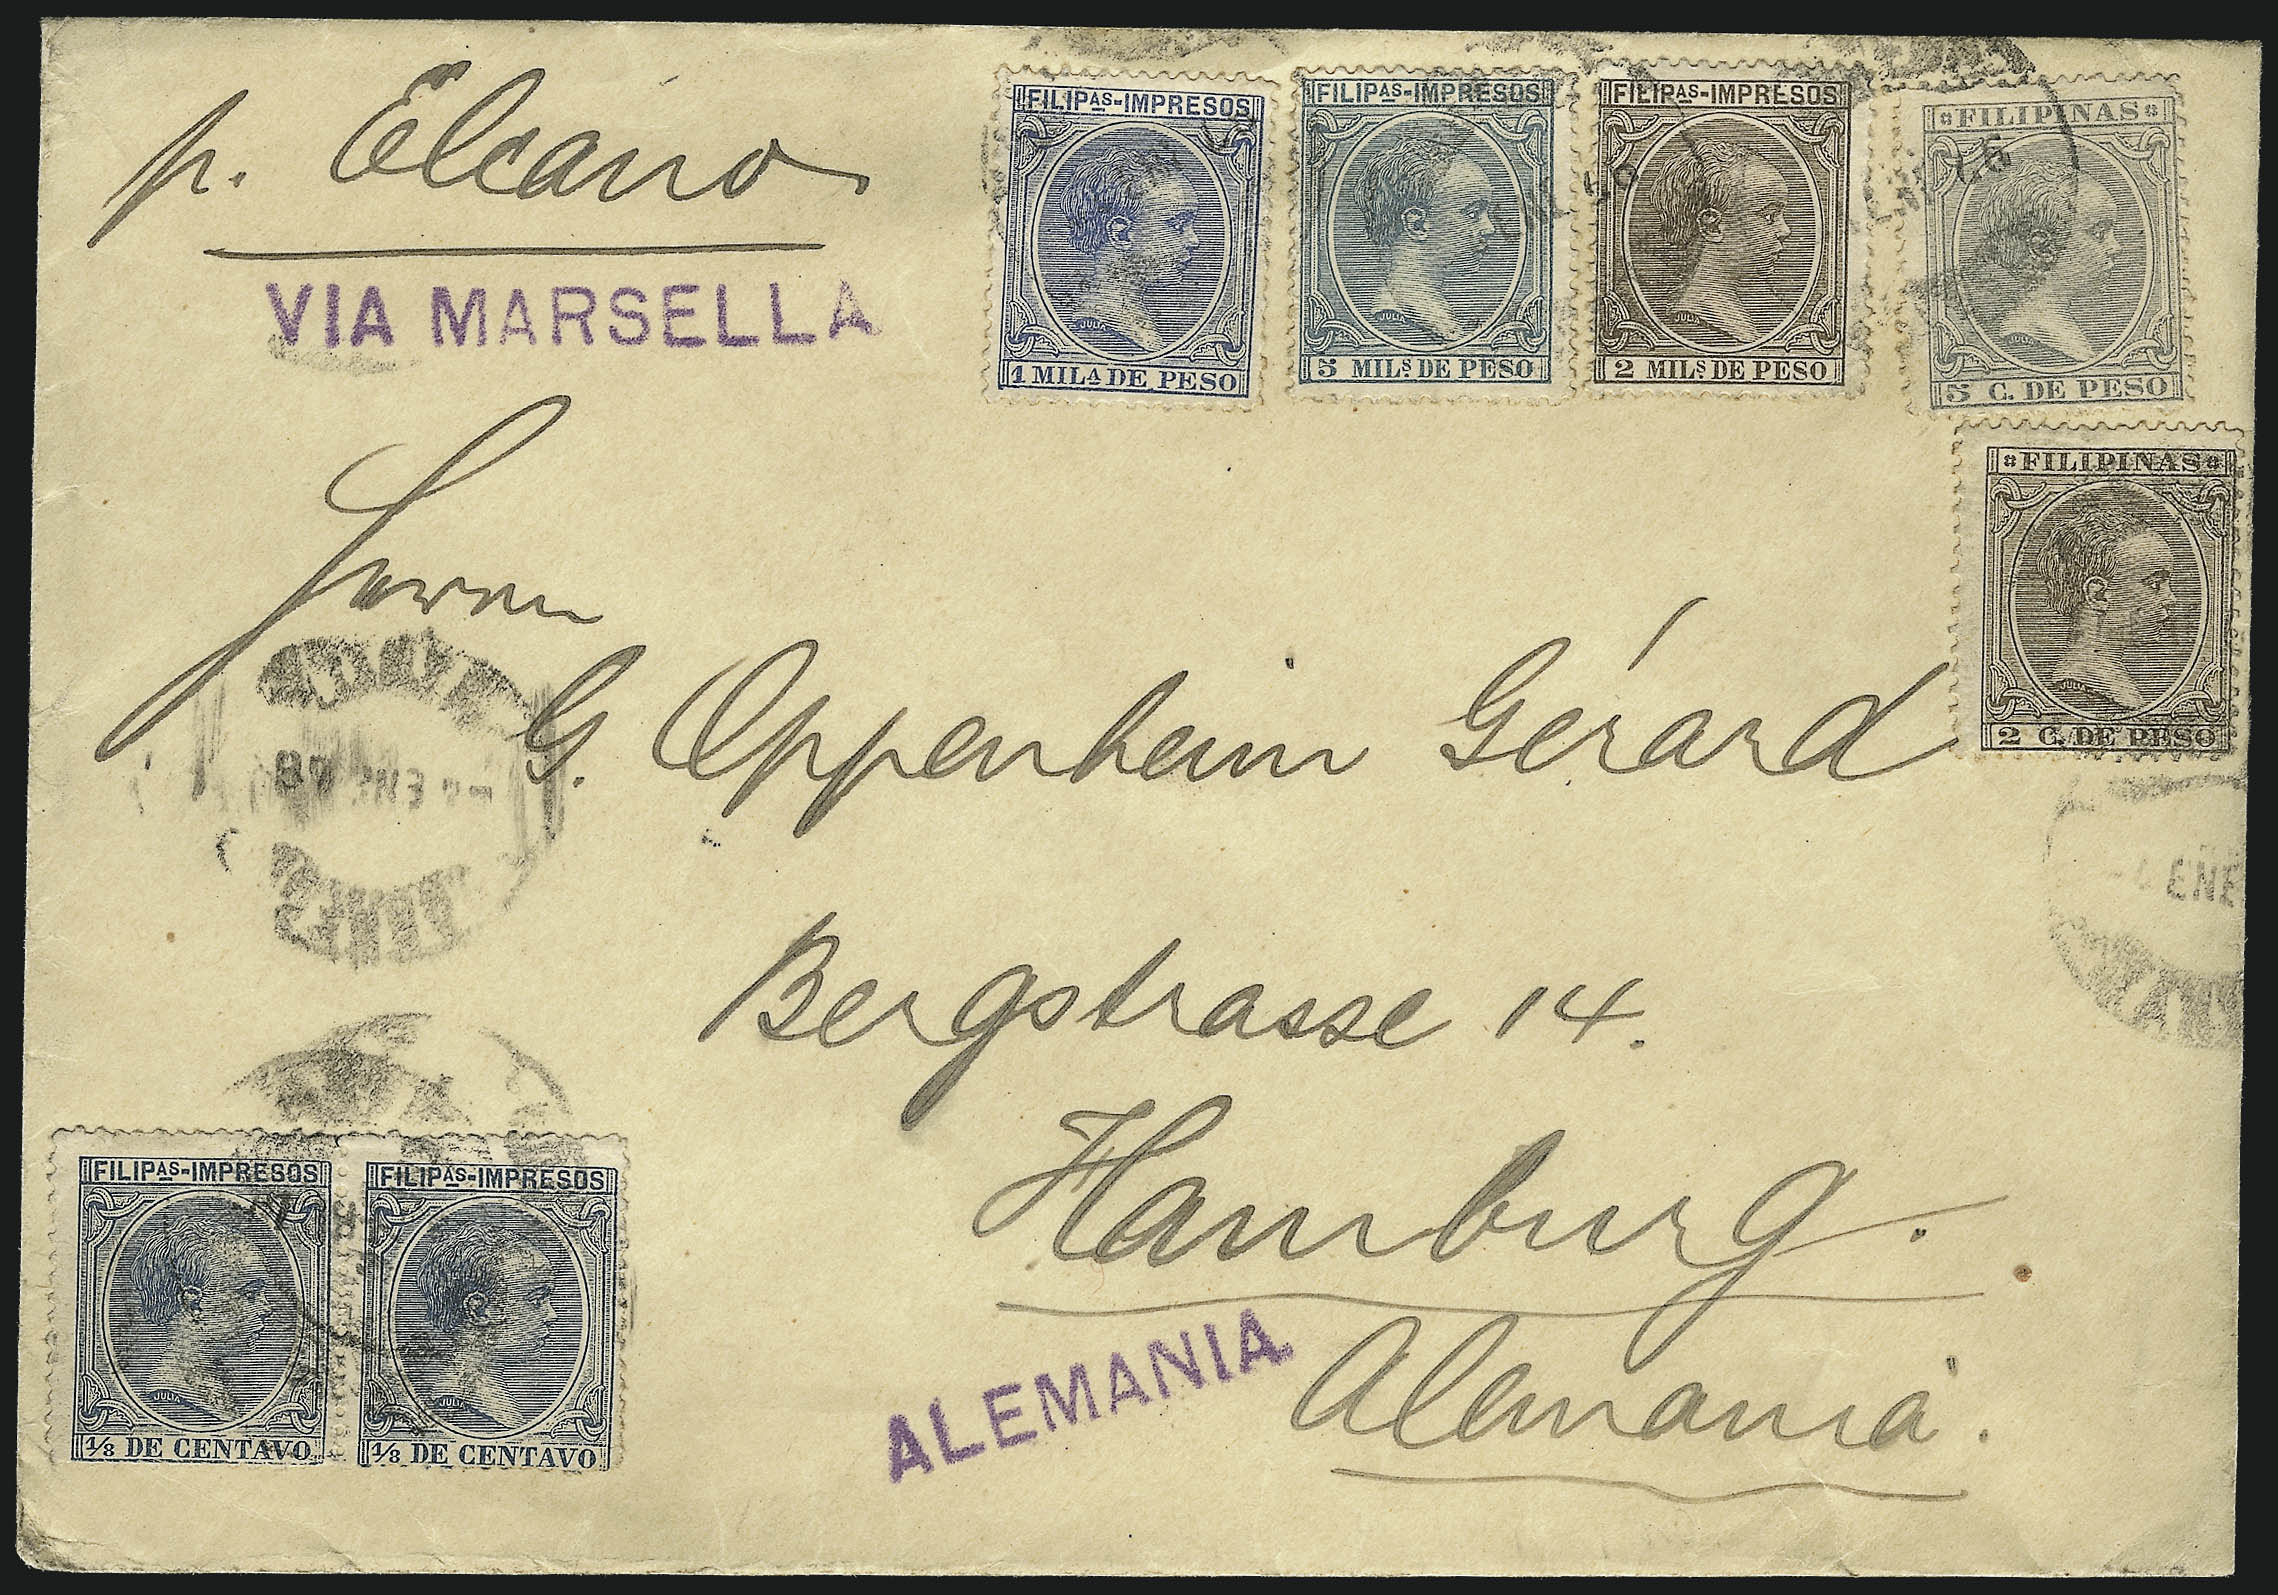 p. Elcano
VIA MARSELLA
FILIPAS-IMPRESOS
JULIA
1 MILA DE PESO
FILIPAS-IMPRESOS
JULIA
5 MILS DE PESO
FILIPAS-IMPRESOS
JULIA
2 MILS DE PESO
FILIPINAS
5 C. DE PESO
FILIPINAS
JULIA
2 C. DE PESO
Herrn
G. Oppenheim Gérard
Bergstrasse 14.
Hamburg.
ALEMANIA
Alemania.
ENE
ENE
FILIPAS-IMPRESOS
JULIA
1/8 DE CENTAVO
FILIPAS-IMPRESOS
JULIA
1/8 DE CENTAVO